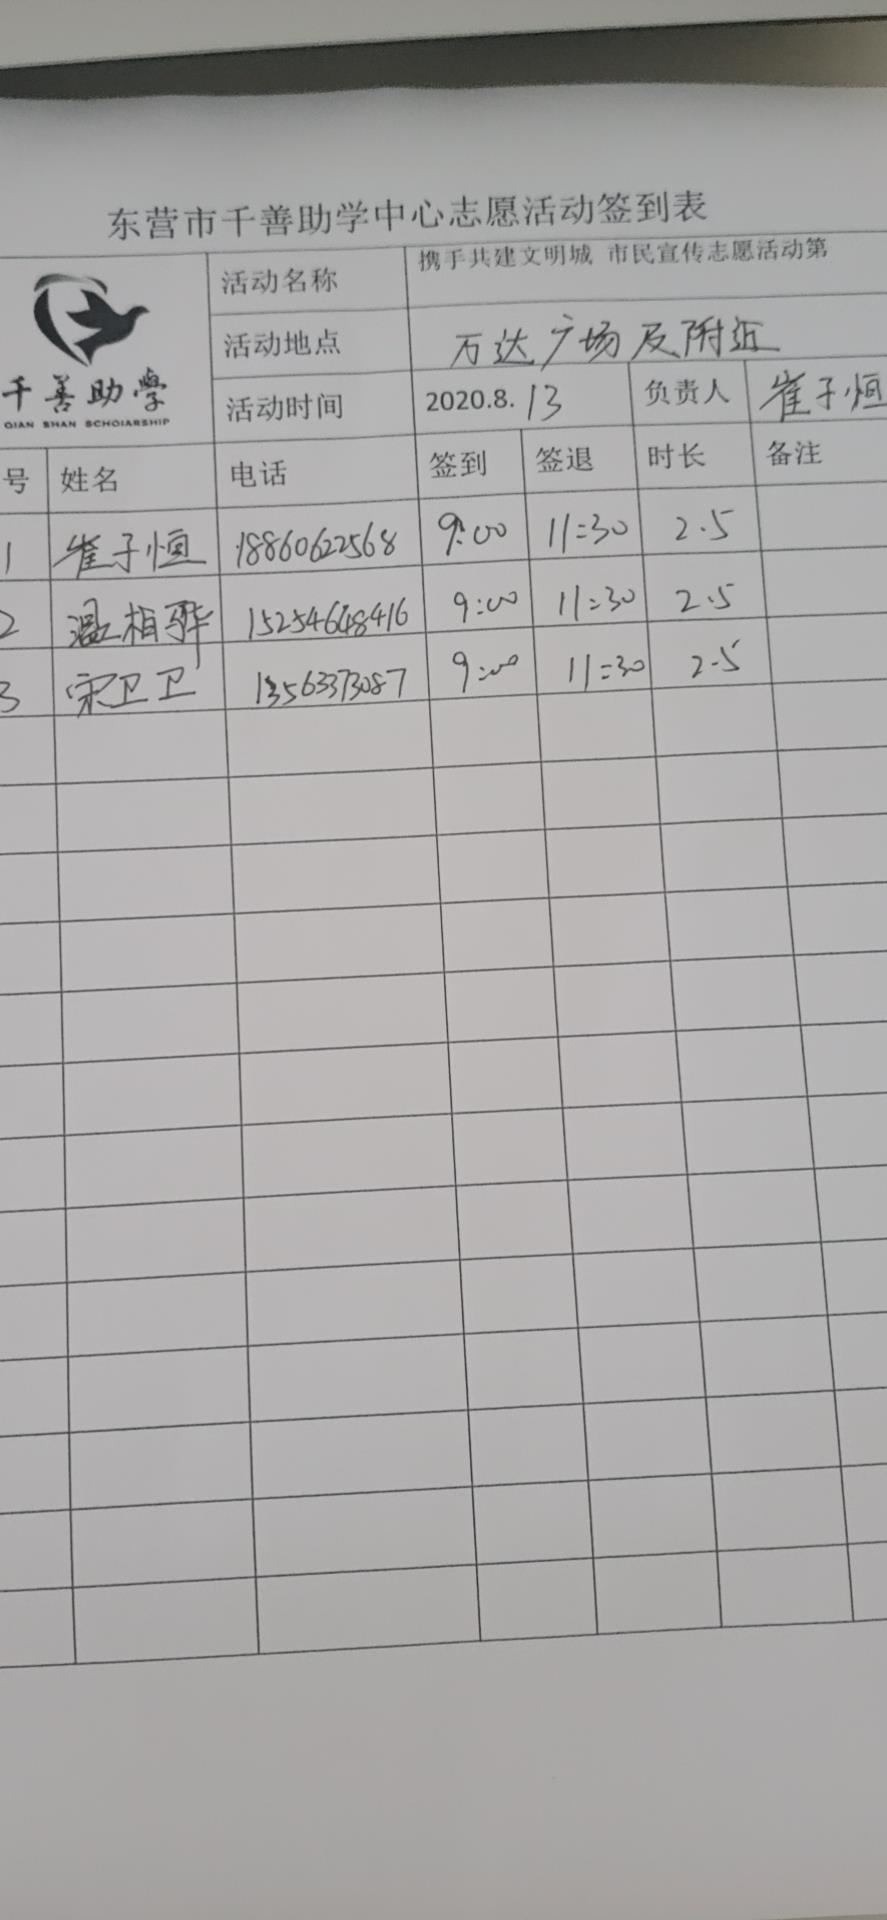 东营市千善助学中心志愿活动签到表
千善助學
QIAN SHAN SCHOIARSHIP
活动名称 携手共建文明城 市民宣传志愿活动第
活动地点 万达广场及附近
活动时间 2020.8.13 负责人 崔子恒
号 姓名 电话 签到 签退 时长 备注
1 崔子恒 18860622568 9:00 11:30 2.5
2 温相骅 15254648416 9:00 11:30 2.5
3 宋卫卫 13563373087 9:00 11:30 2.5